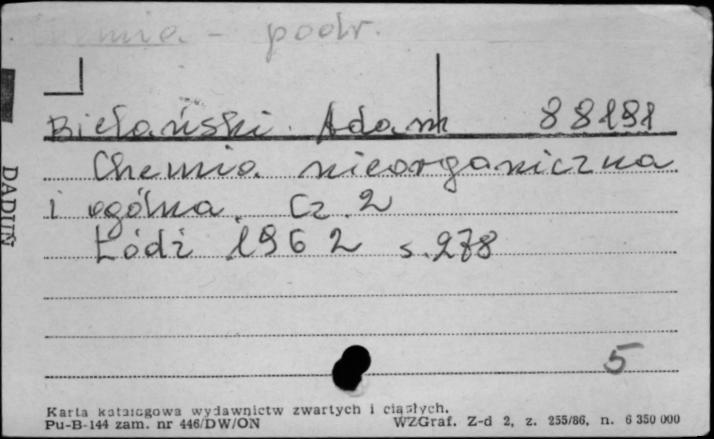 Chemia - podr.
Bielański Adam 88191
Chemia nieorganiczna
i ogólna. Cz. 2
Łódź 1962 s. 278
DADUŃ
5
Karta katalogowa wydawnictw zwartych i ciągłych.
Pu-B-144 zam. nr 446/DW/ON WZGraf. Z-d 2, z. 255/86, n. 6 350 000